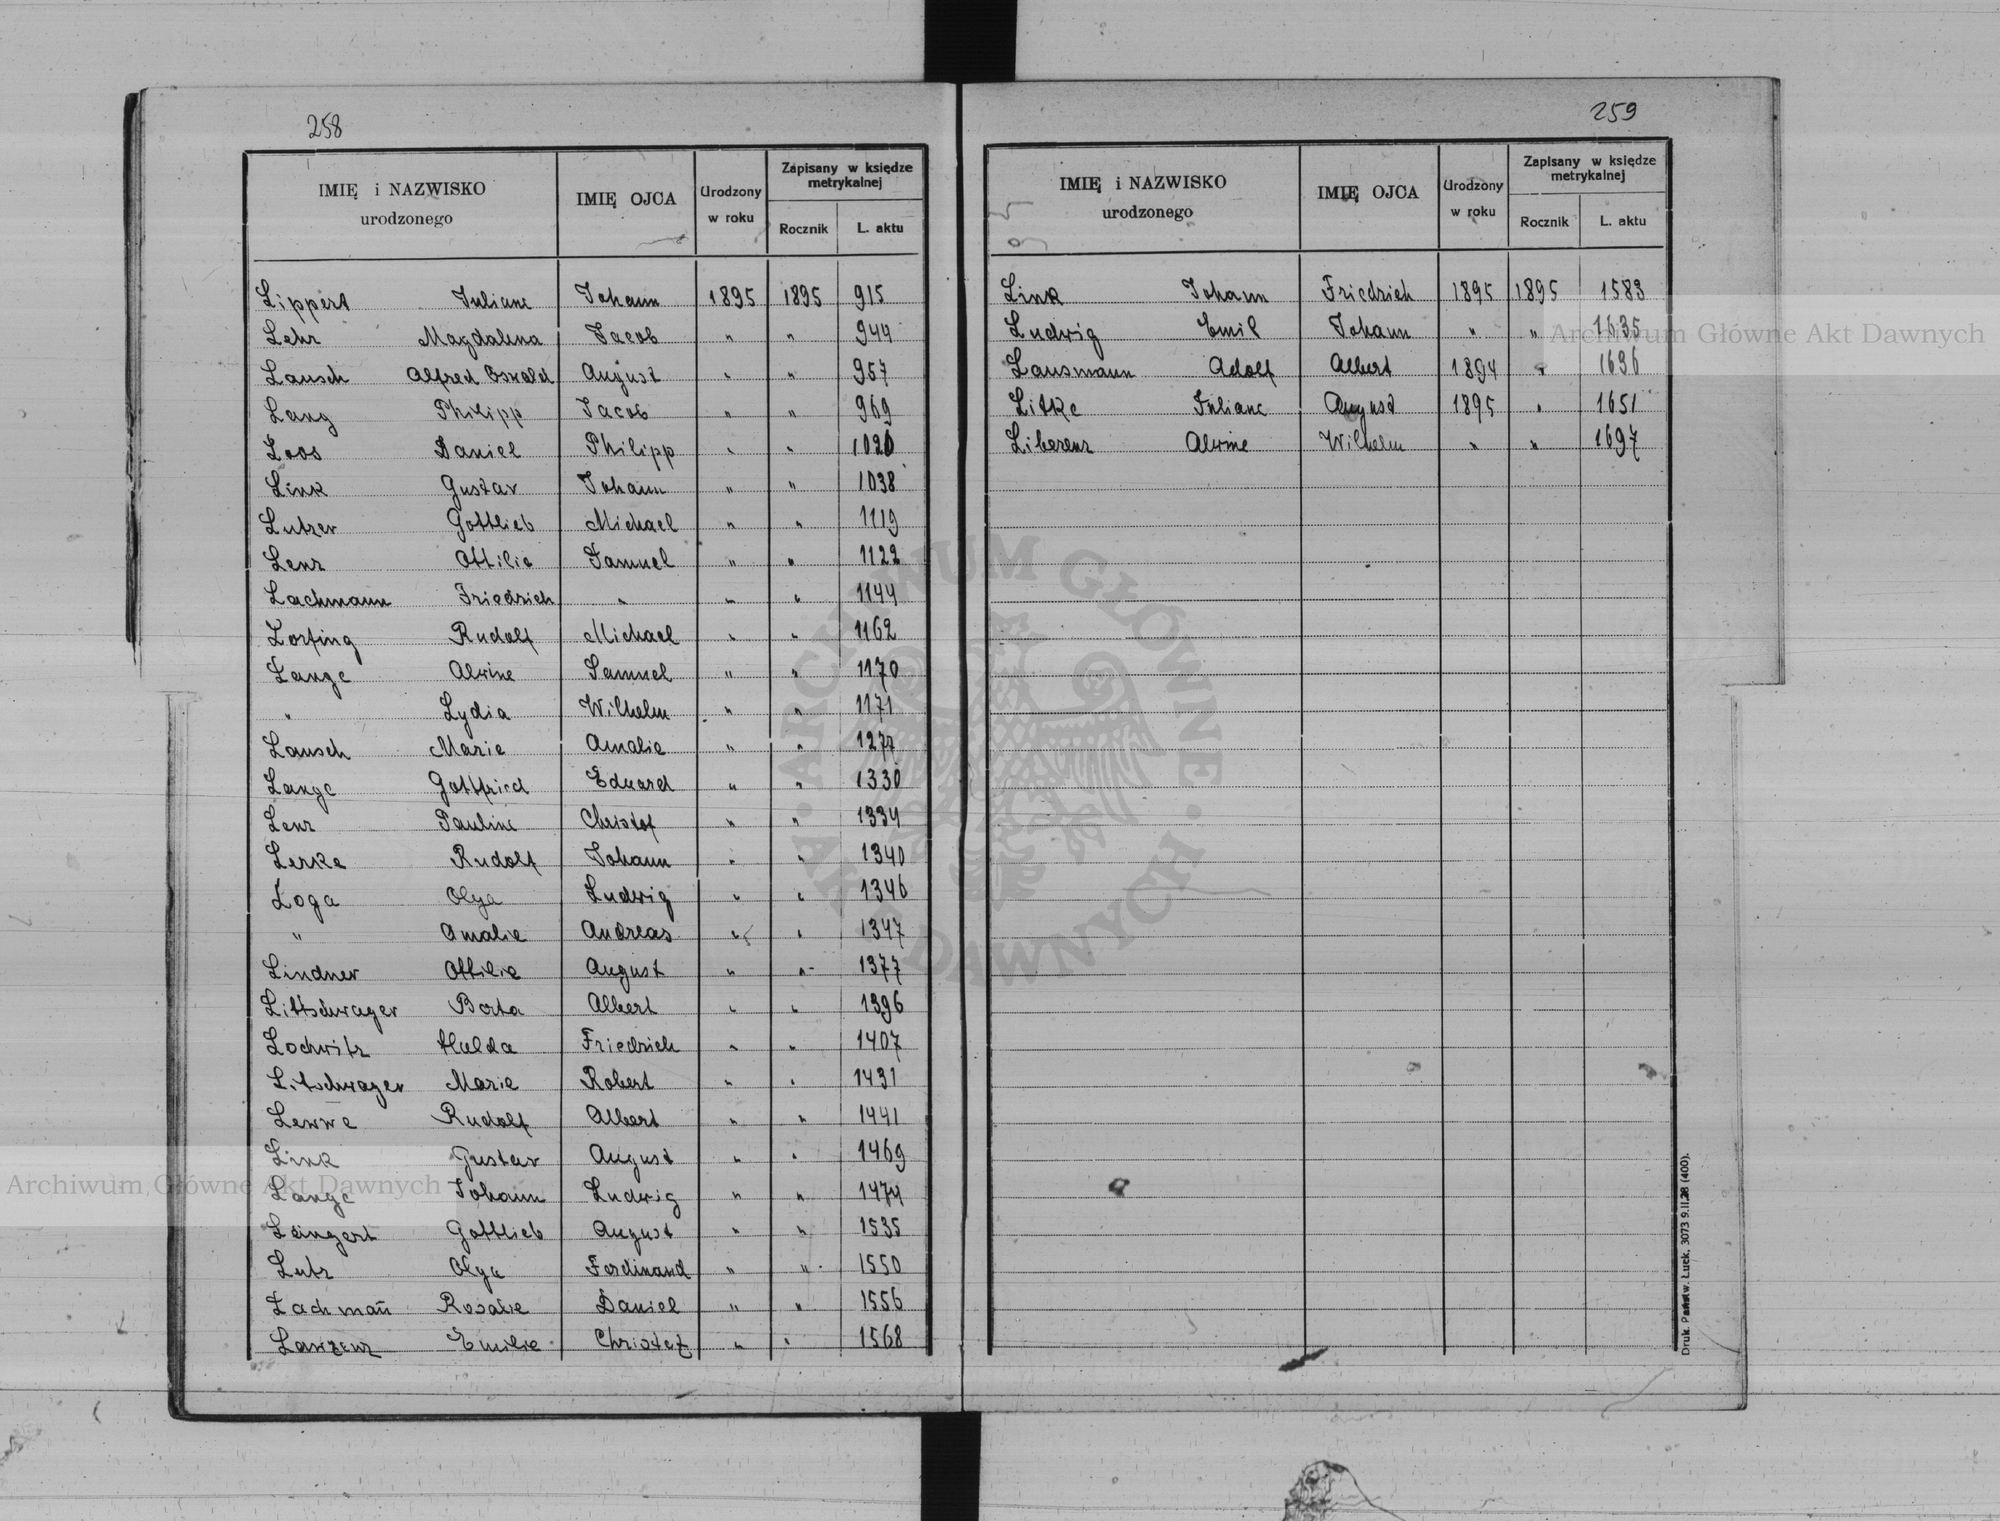 258
IMIĘ i NAZWISKO urodzonego | IMIĘ OJCA | Urodzony w roku | Zapisany w księdze metrykalnej
Rocznik | L. aktu
Lippert Juliane | Johann | 1895 | 1895 | 915
Lehr Magdalena | Jacob | " | " | 944
Lausch Alfred Oswald | August | " | " | 957
Lang Philipp | Jacob | " | " | 969
Loos Daniel | Philipp | " | " | 1020
Link Gustav | Johann | " | " | 1038
Lutzer Gottlieb | Michael | " | " | 1119
Lenz Ottilie | Samuel | " | " | 1122
Lachmann Friedrich | " | " | " | 1144
Lorfing Rudolf | Michael | " | " | 1162
Lange Alwine | Samuel | " | " | 1170
" Lydia | Wilhelm | " | " | 1171
Lausch Marie | Amalie | " | " | 1277
Lange Gottfried | Eduard | " | " | 1330
Lenz Pauline | Christof | " | " | 1334
Lerke Rudolf | Johann | " | " | 1340
Loga Olga | Ludwig | " | " | 1346
" Amalie | Andreas | " | " | 1347
Lindner Ottilie | August | " | " | 1377
Littschwager Berta | Albert | " | " | 1396
Lochwitz Hulda | Friedrich | " | " | 1407
Litschwager Marie | Robert | " | " | 1431
Lewwe Rudolf | Albert | " | " | 1441
Link Gustav | August | " | " | 1469
Lange Johann | Ludwig | " | " | 1474
Leingert Gottlieb | August | " | " | 1535
Lutz Olga | Ferdinand | " | " | 1550
Lachmañ Rosalie | Daniel | " | " | 1556
Lawrenz Emilie | Christof | " | " | 1568
259
IMIĘ i NAZWISKO urodzonego | IMIĘ OJCA | Urodzony w roku | Zapisany w księdze metrykalnej
Rocznik | L. aktu
Link Johann | Friedrich | 1895 | 1895 | 1583
Ludwig Emil | Johann | " | " | 1635
Lausmann Adolf | Albert | 1894 | " | 1636
Litke Juliane | August | 1895 | " | 1651
Liberenz Alwine | Wilhelm | " | " | 1697
Druk. Państw. Łuck, 3073 9.II.28 (400).
Archiwum Główne Akt Dawnych
Archiwum Główne Akt Dawnych
ARCHIWUM GŁÓWNE · AKT DAWNYCH ·